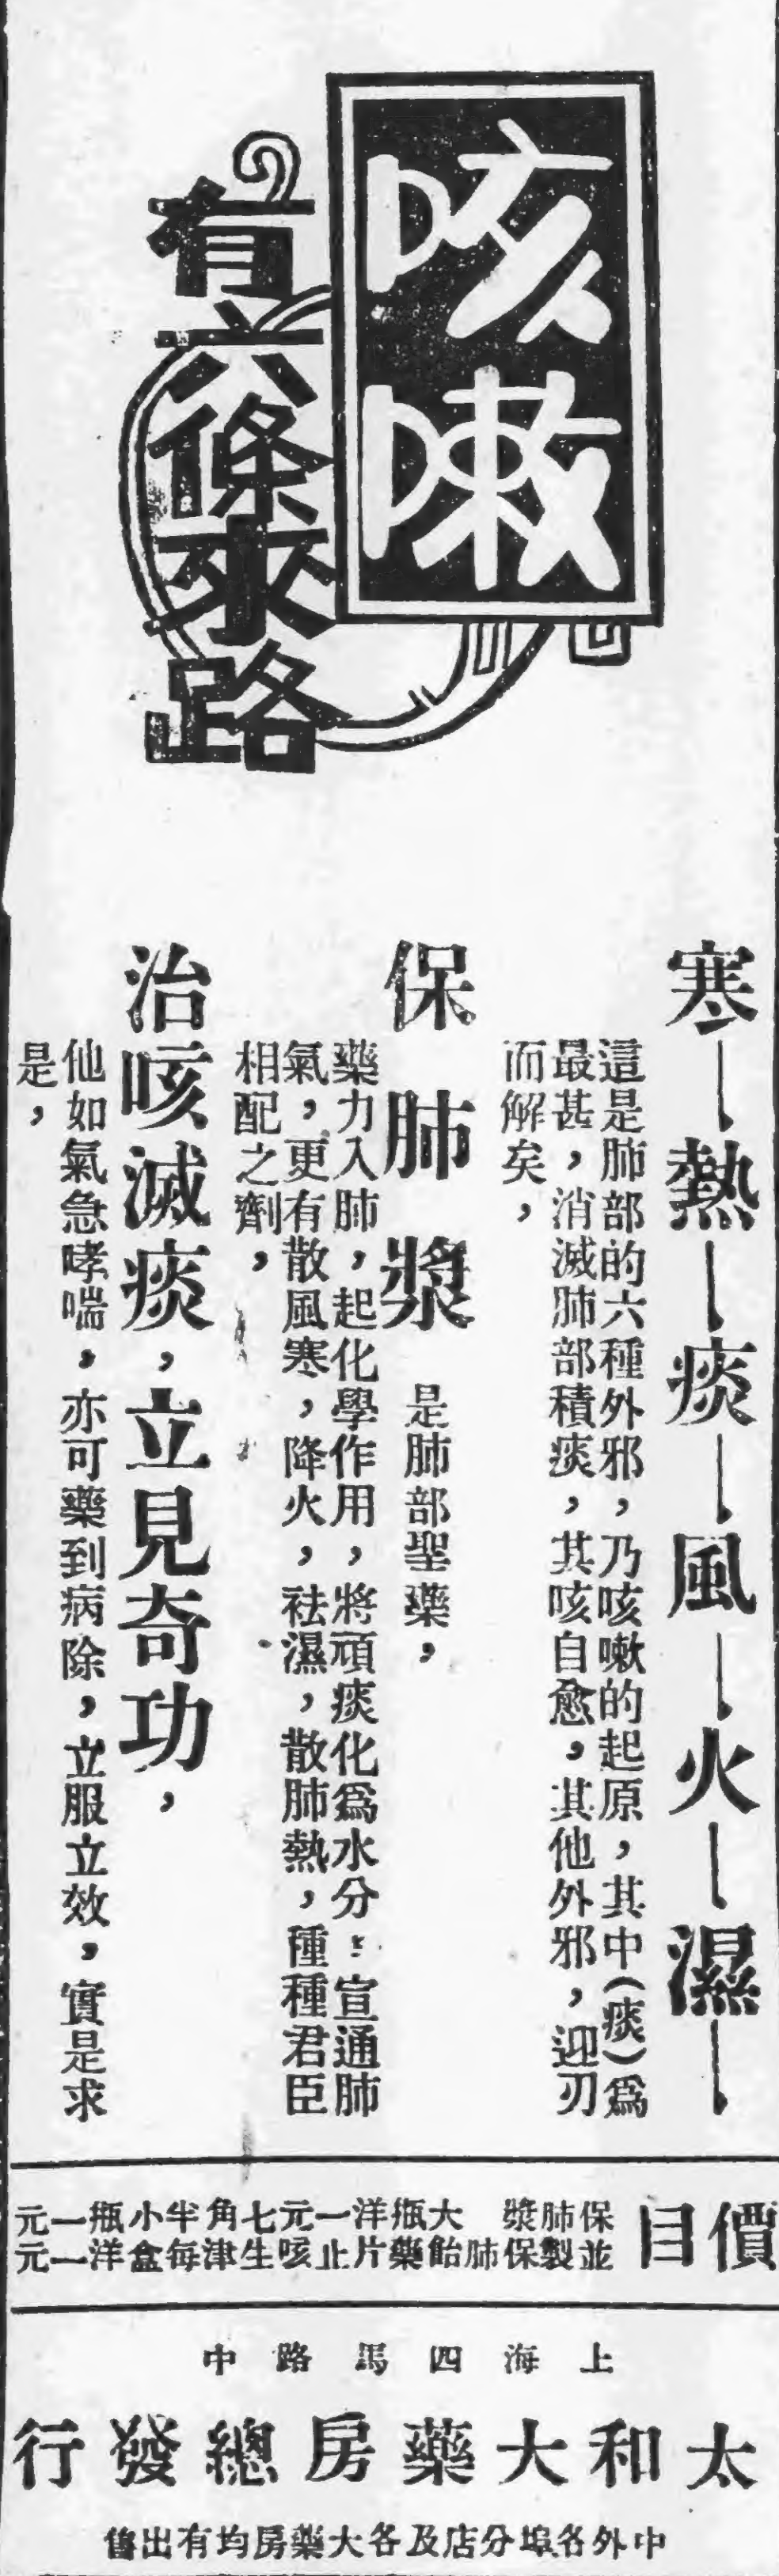 咳嗽
有六條來路
寒—熱—痰—風—火—濕—
這是肺部的六種外邪，乃咳嗽的起原，其中（痰）爲
最甚，消滅肺部積痰，其咳自愈，其他外邪，迎刃
而解矣，
保肺漿 是肺部聖藥，
藥力入肺，起化學作用，將頑痰化爲水分；宣通肺
氣，更有散風寒，降火，祛濕，散肺熱，種種君臣
相配之劑，
治咳滅痰，立見奇功，
他如氣急哮喘，亦可藥到病除，立服立效，實是求
是，
價目
保肺漿 大瓶洋一元七角半小瓶一元
並製保肺飴藥片止咳生津每盒洋一元
上海四馬路中
太和大藥房總發行
中外各埠分店及各大藥房均有出售